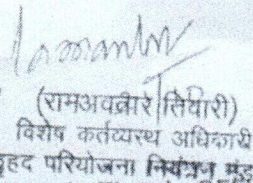 (रामअवतार तिवारी)
विशेष कर्तव्यस्थ अधिकारी
वृहद परियोजना नियंत्रण मंडल